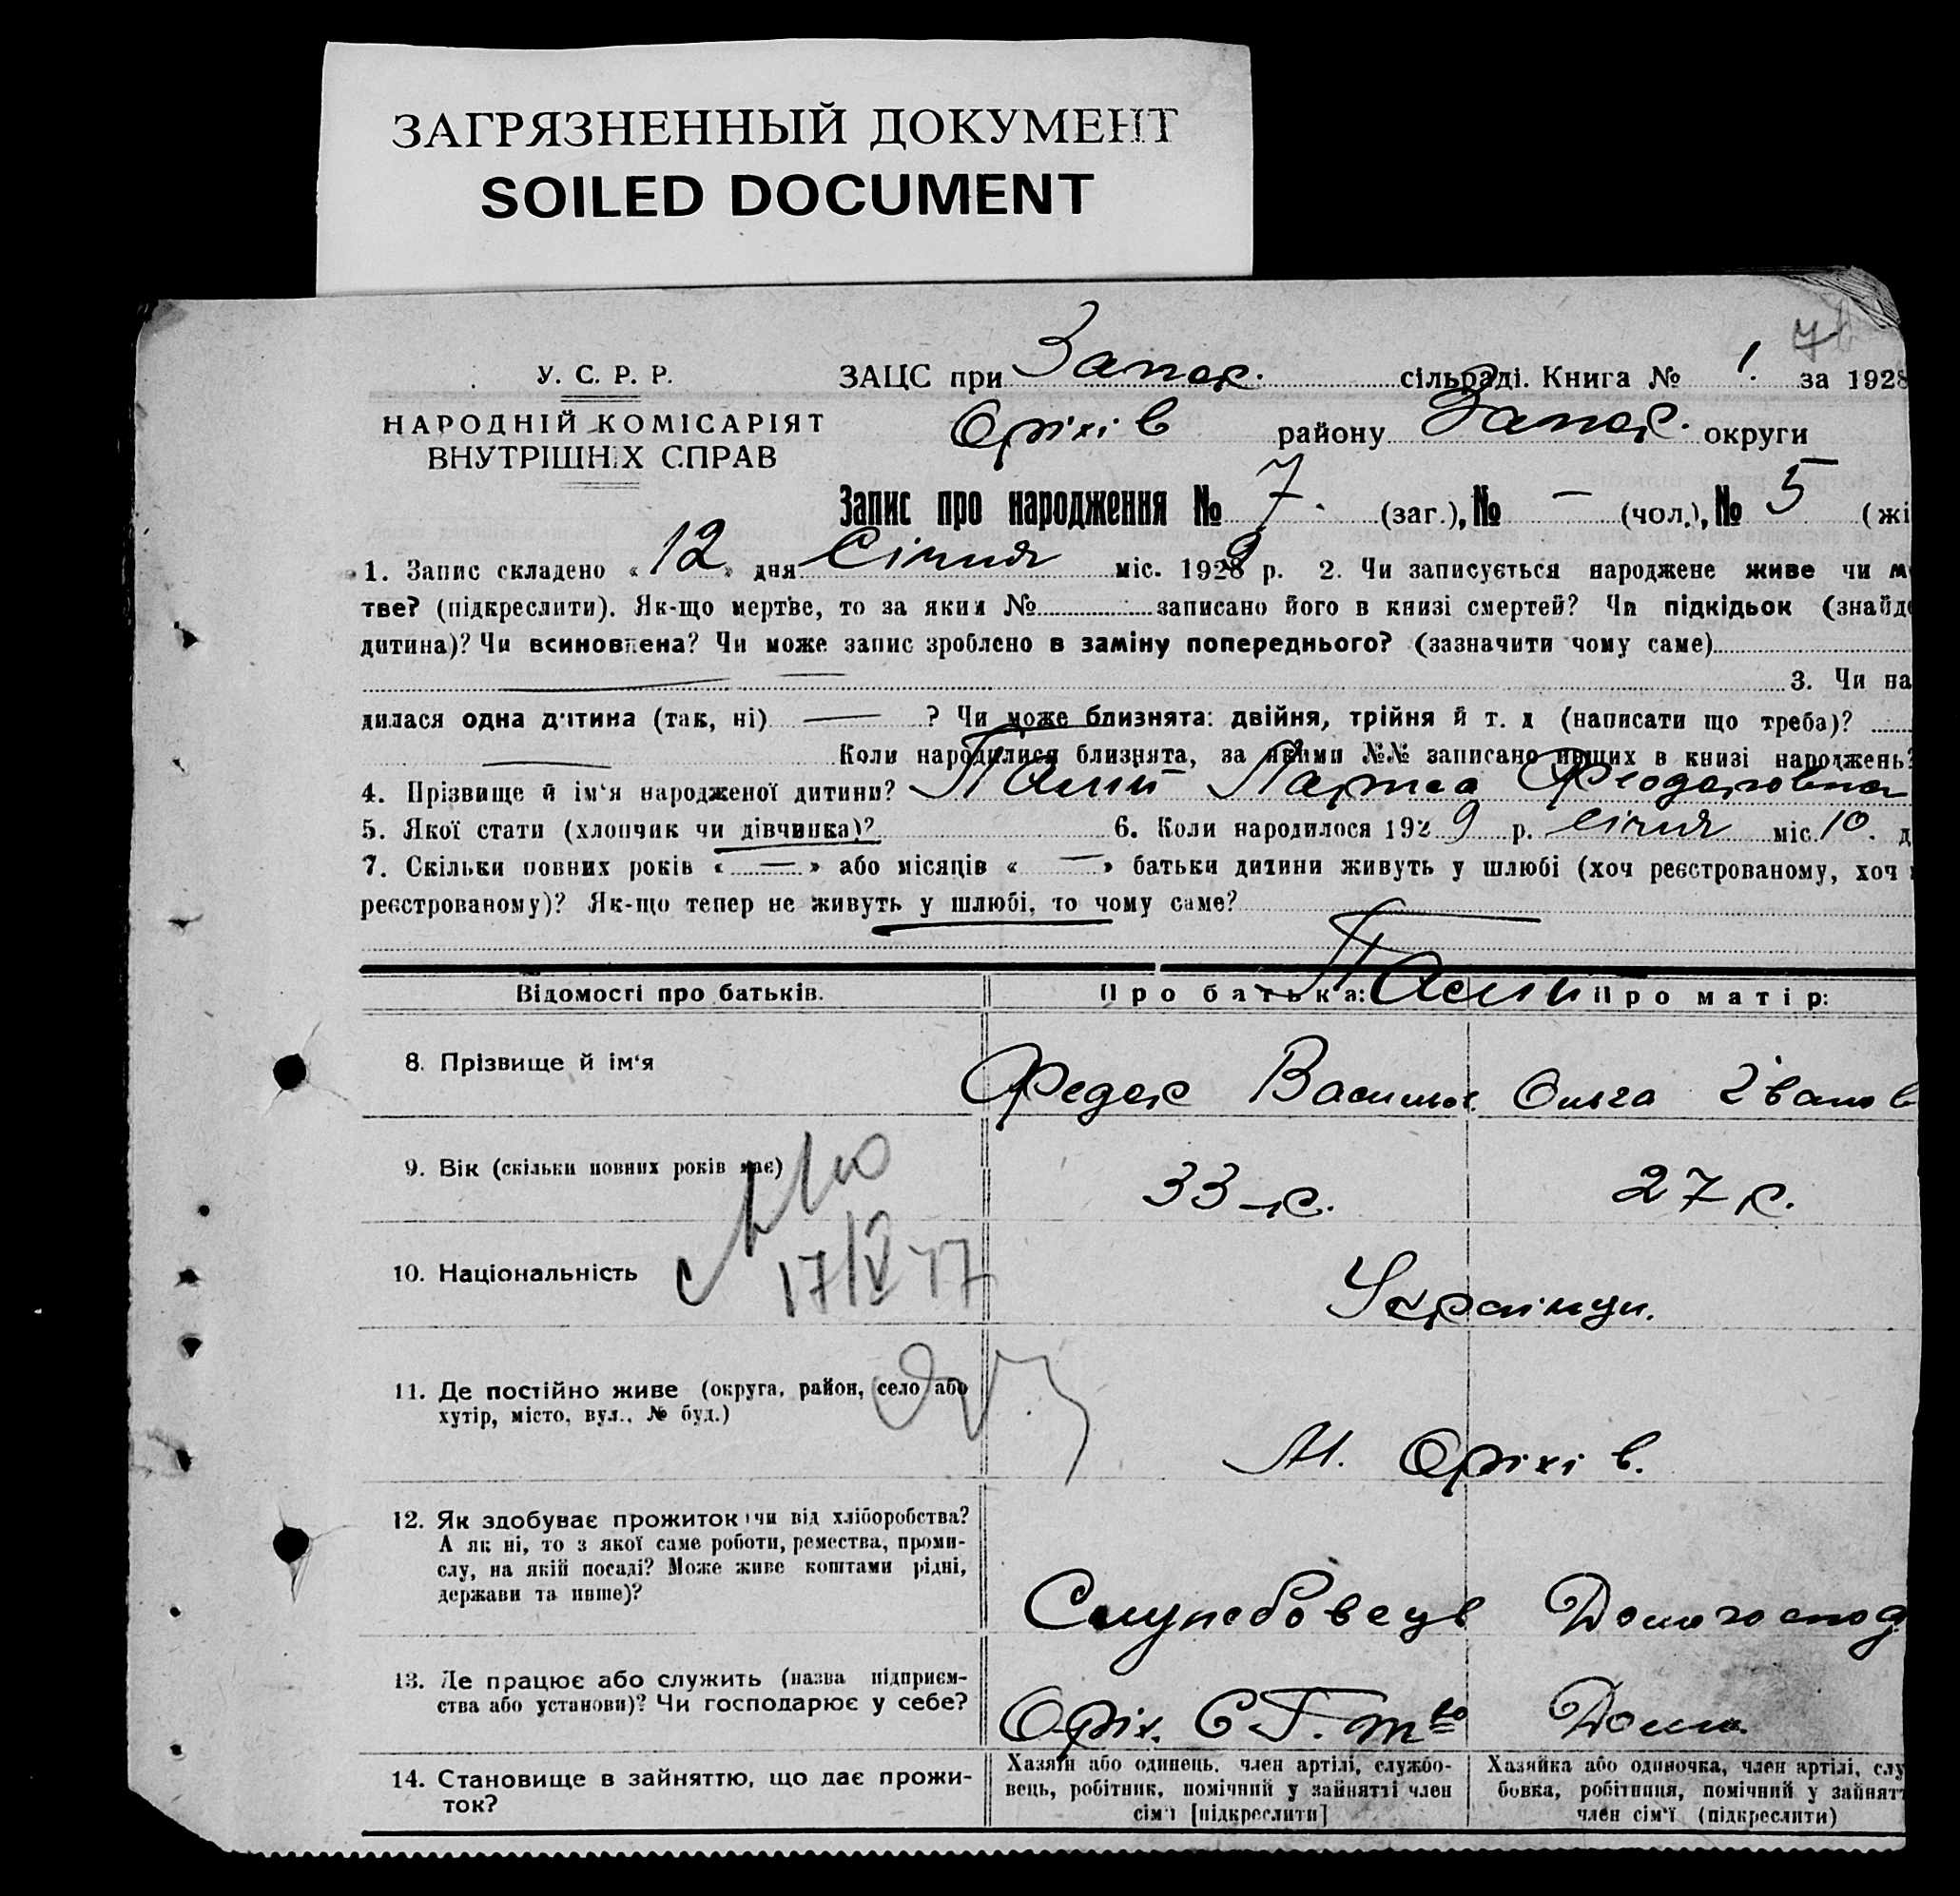 ЗАГРЯЗНЕННЫЙ ДОКУМЕНТ
SOILED DOCUMENT
У. С. Р. Р.
НАРОДНІЙ КОМІСАРІЯТ
ВНУТРІШНІХ СПРАВ
ЗАЦС при Запор. сільраді. Книга № 1. за 1928
Оріхів району Запор. округи
Запис про народження № 7. (заг.), № — (чол.), № 5 (жі
1. Запис складено « 12 » дня Січня міс. 1929 р. 2. Чи записується народжене живе чи м
тве? (підкреслити). Як-що мертве, то за яким № записано його в книзі смертей? Чи підкідьок (знайде
дитина)? Чи всиновлена? Чи може запис зроблено в заміну попереднього? (зазначити чому саме)
3. Чи на
дилася одна дитина (так, ні) — ? Чи може близнята: двійня, трійня й т. д (написати що треба)?
— Коли народилися близнята, за якими №№ записано инших в книзі народжень?
4. Прізвище й ім'я народженої дитини? Палій Феодоровна
5. Якої стати (хлопчик чи дівчинка)? 6. Коли народилося 1929 р. січня міс. 10. д
7. Скільки повних років « — » або місяців « — » батьки дитини живуть у шлюбі (хоч реєстрованому, хоч
реєстрованому)? Як-що тепер не живуть у шлюбі, то чому саме?
Відомості про батьків.
Про батька:
Палій
Про матір:
8. Прізвище й ім'я
Федор Васильов.
Ольга Іванов
9. Вік (скільки повних років має)
33 р.
27 р.
17/V 47
10. Національність
Українци.
11. Де постійно живе (округа, район, село або
хутір, місто, вул., № буд.)
М. Оріхів.
12. Як здобуває прожиток: чи від хліборобства?
А як ні, то з якої саме роботи, ремества, проми-
слу, на якій посаді? Може живе коштами рідні,
держави та инше)?
Службовець
Домогоспод
13. Де працює або служить (назва підприєм-
ства або установи)? Чи господарює у себе?
Оріх. С. Г. т-во
Дома.
14. Становище в зайняттю, що дає прожи-
ток?
Хазяїн або одинець, член артілі, службо-
вець, робітник, помічний у зайнятті член
сім'ї [підкреслити]
Хазяйка або одиночка, член артілі, слу
бовка, робітниця, помічний у зайнят
член сім'ї (підкреслити)